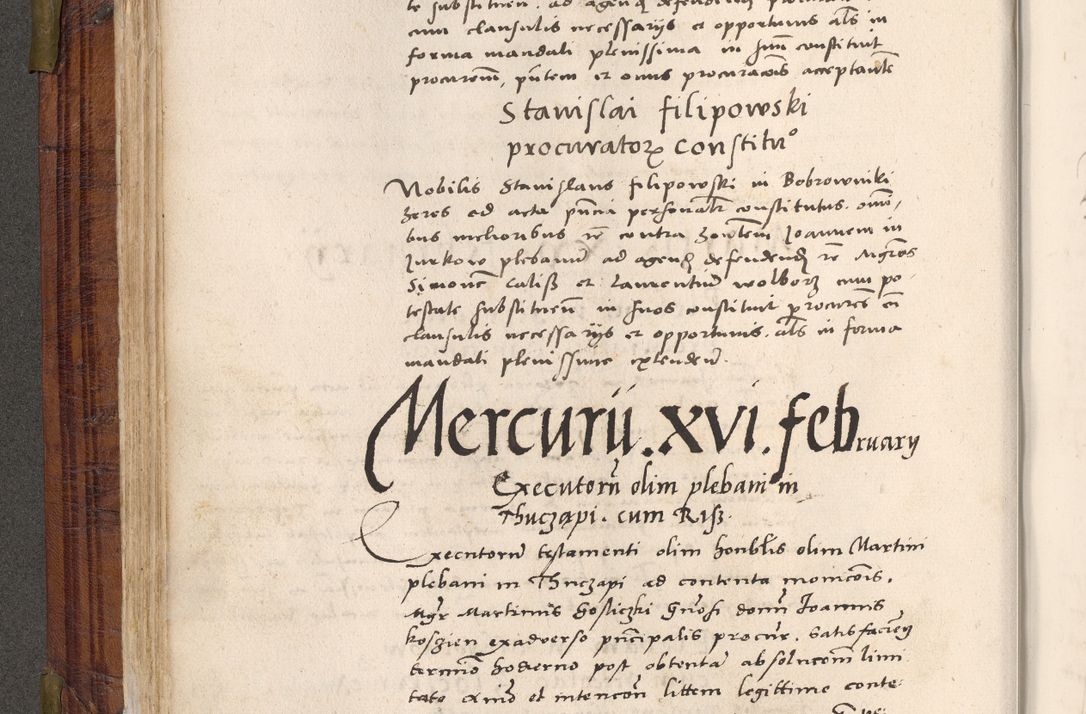 te substituen. ad agend defendend
cum clausulis necessariis et opportunis als in
forma mandati plenissima in suu constituit
procurem, pntem et onus procuracois acceptante
Stanislai filipowski
procurator constituo
Nobilis Stanislaus filipowski in Bobrowniki
heres ad acta pncia personalr constitutus omi,
bus melioribus re contra honlem Joannem in
Jurkow plebanum ad agend defendend re Mgros
Simone Calisz et Laurentiu wolborz cum po
testate substituen in suos constituit procures cu
clausulis necessariis et opportunis als in forma
mandati plenissime explenden.
Mercurii . xvi . february
Executoru olim plebani in
Thuczapi . cum Risz .
Executoru testamenti olim honblis olim Martini
plebani in Thuczapi ad contenta monicois,
Mgr Martinus Gosliczki Gnosi domi Joannis
koszien exadverso pncipalis procur. Satisfacien
termio hodierno post obtenta absolucom limi
tato et intencon littem legittime conte-